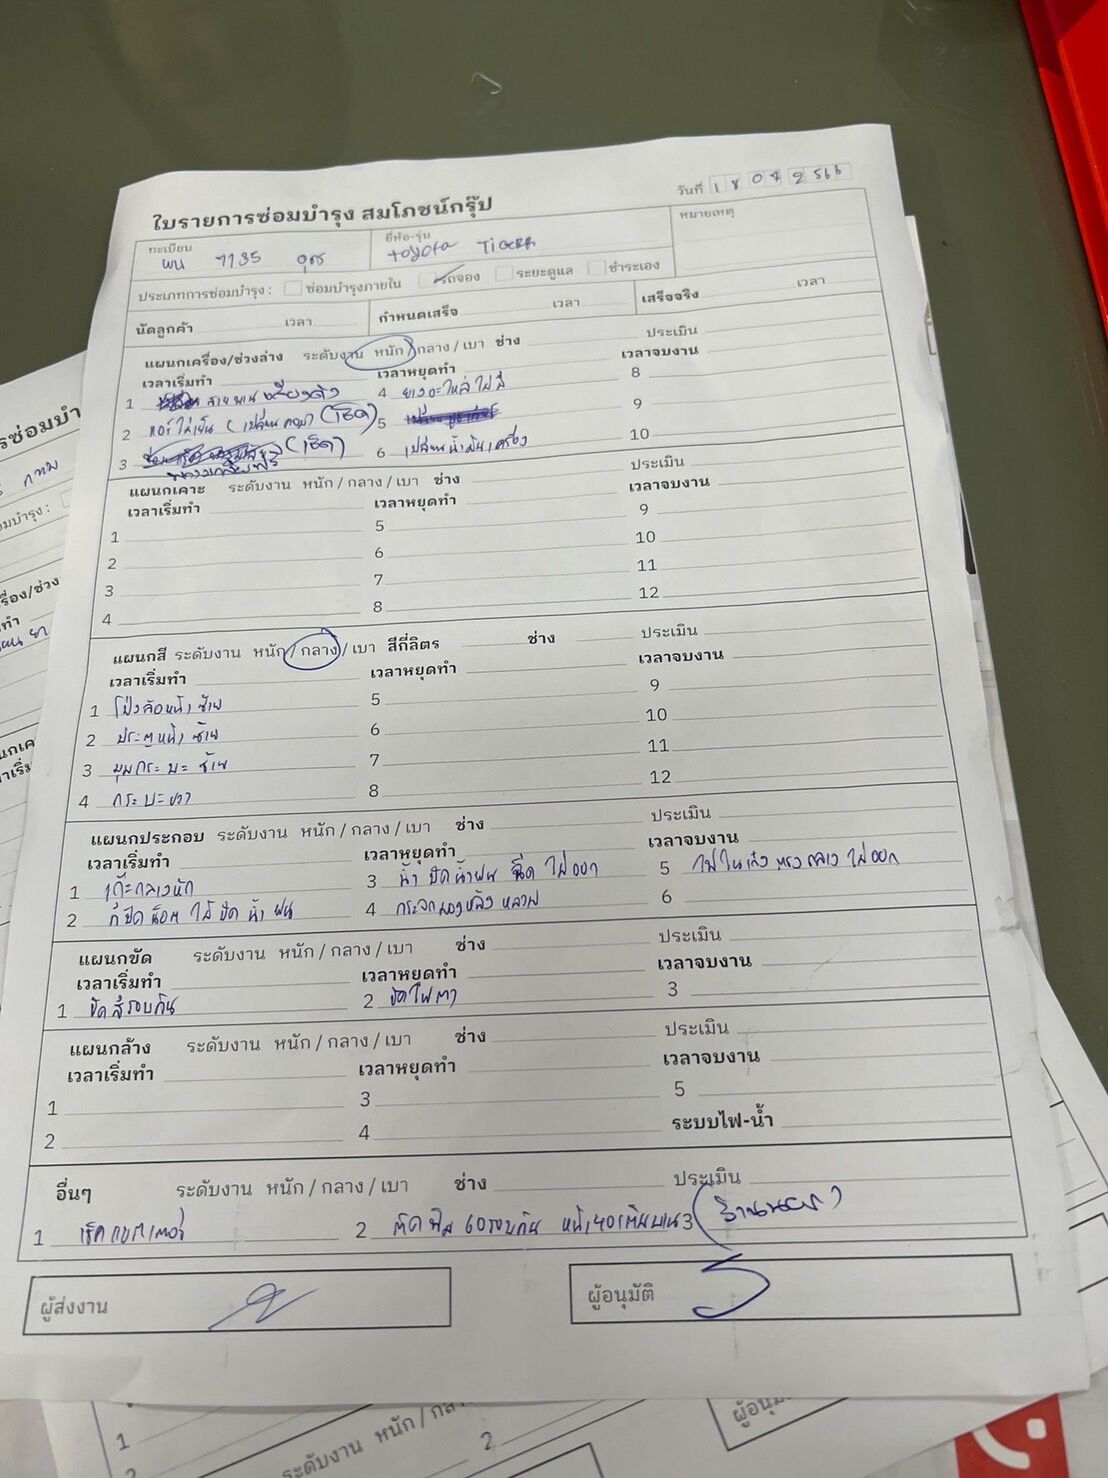 ใบรายการซ่อมบำรุง สมโภชน์กรุ๊ป
วันที่ 18 07 2566
ทะเบียน
ผน 7735 อุดร
ยี่ห้อ-รุ่น
toyota TIGER
หมายเหตุ
ประเภทการซ่อมบำรุง : ซ่อมบำรุงภายใน รถจอง ระยะดูแล ชำระเอง
นัดลูกค้า เวลา กำหนดเสร็จ เวลา เสร็จจริง เวลา
แผนกเครื่อง/ช่วงล่าง ระดับงาน หนัก / กลาง / เบา ช่าง ประเมิน
เวลาเริ่มทำ เวลาหยุดทำ เวลาจบงาน
1 สายพานเสียงดัง 4 ยางอะไหล่ใส่สี 8
2 แอร์ไม่เย็น (เปลี่ยนคอม) (เช็ค) 5 9
3 (เช็ค) 6 เปลี่ยนน้ำมันเครื่อง 10
แผนกเคาะ ระดับงาน หนัก / กลาง / เบา ช่าง ประเมิน
เวลาเริ่มทำ เวลาหยุดทำ เวลาจบงาน
1 5 9
2 6 10
3 7 11
4 8 12
แผนกสี ระดับงาน หนัก / กลาง / เบา สีกี่ลิตร ช่าง ประเมิน
เวลาเริ่มทำ เวลาหยุดทำ เวลาจบงาน
1 โป่งล้อหน้าซ้าย 5 9
2 ประตูหน้าซ้าย 6 10
3 มุมกระบะซ้าย 7 11
4 กระบะขวา 8 12
แผนกประกอบ ระดับงาน หนัก / กลาง / เบา ช่าง ประเมิน
เวลาเริ่มทำ เวลาหยุดทำ เวลาจบงาน
1 เก๊ะกลางหัก 3 น้ำปัดน้ำฝนฉีดไม่ออก 5 ไฟในเก๋งตรงกลางไม่ออก
2 ที่ปิดน็อตใต้ปัดน้ำฝน 4 กระจกมองหลังหลวม 6
แผนกขัด ระดับงาน หนัก / กลาง / เบา ช่าง ประเมิน
เวลาเริ่มทำ เวลาหยุดทำ เวลาจบงาน
1 ขัดสีรอบคัน 2 ขัดไฟตา 3
แผนกล้าง ระดับงาน หนัก / กลาง / เบา ช่าง ประเมิน
เวลาเริ่มทำ เวลาหยุดทำ เวลาจบงาน
1 3 5
2 4 ระบบไฟ-น้ำ
อื่นๆ ระดับงาน หนัก / กลาง / เบา ช่าง ประเมิน
1 เช็คแบตเตอรี่ 2 ติดฟิล์ม 60 รอบคัน หน้า 40 เต็มบาน 3 (ร้านนอก)
ผู้ส่งงาน
ผู้อนุมัติ